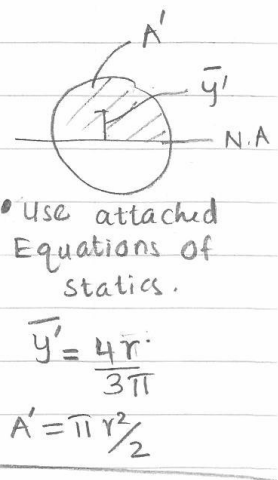 A'
ȳ'
N.A
• Use attached
Equations of
statics.
ȳ' = 4r/3π
A' = πr²/2